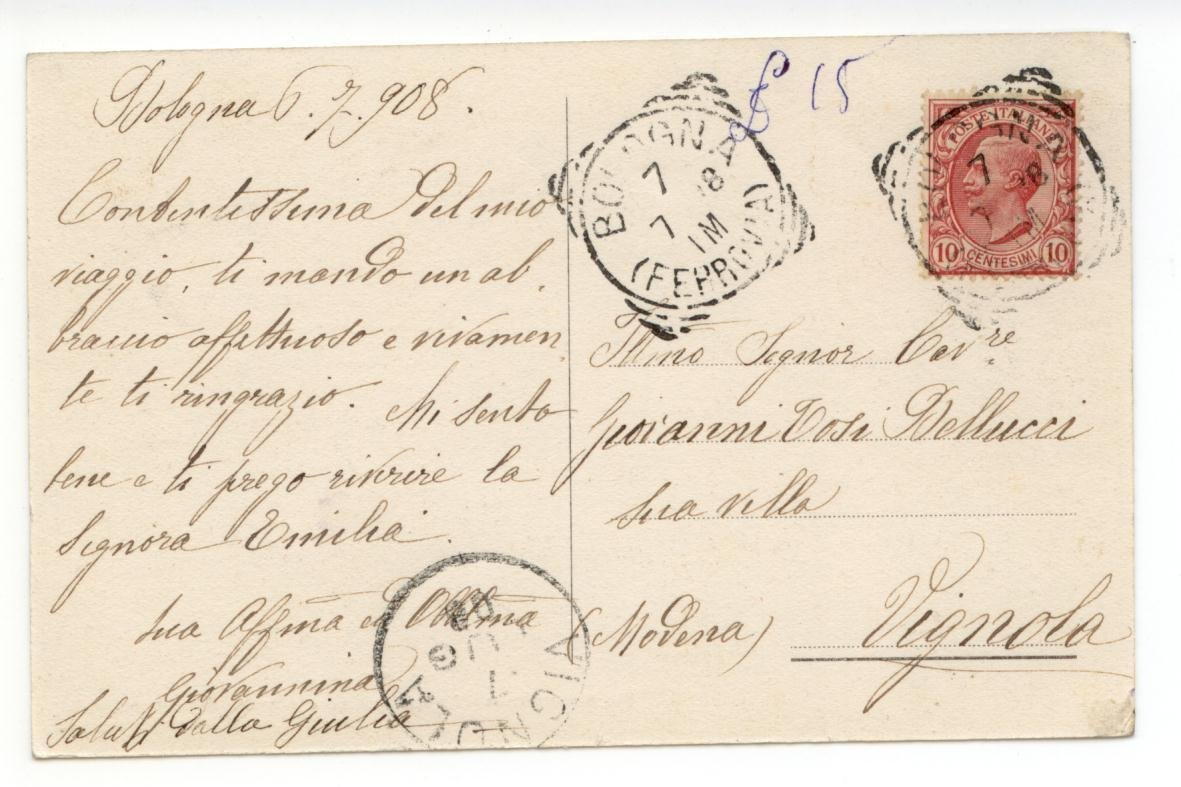 Bologna 6.7.908.
Contentissima del mio
viaggio, ti mando un ab,
braccio affettuoso e vivamen,
te ti ringrazio. Mi sento
bene e ti prego riverire la
Signora Emilia.
sua Affma ed Obblma
Giovannina
Saluti dalla Giulia
£ 15
BOLOGNA
7 08
7 1M
(FERROVIA)
POSTE ITALIANE
10 CENTESIMI 10
BOLOGNA
7 08
7 1M
Illmo Signor Cavre
Giovanni Tosi Bellucci
sua villa
Vignola
(Modena)
VIGNOLA
08
LUG
7